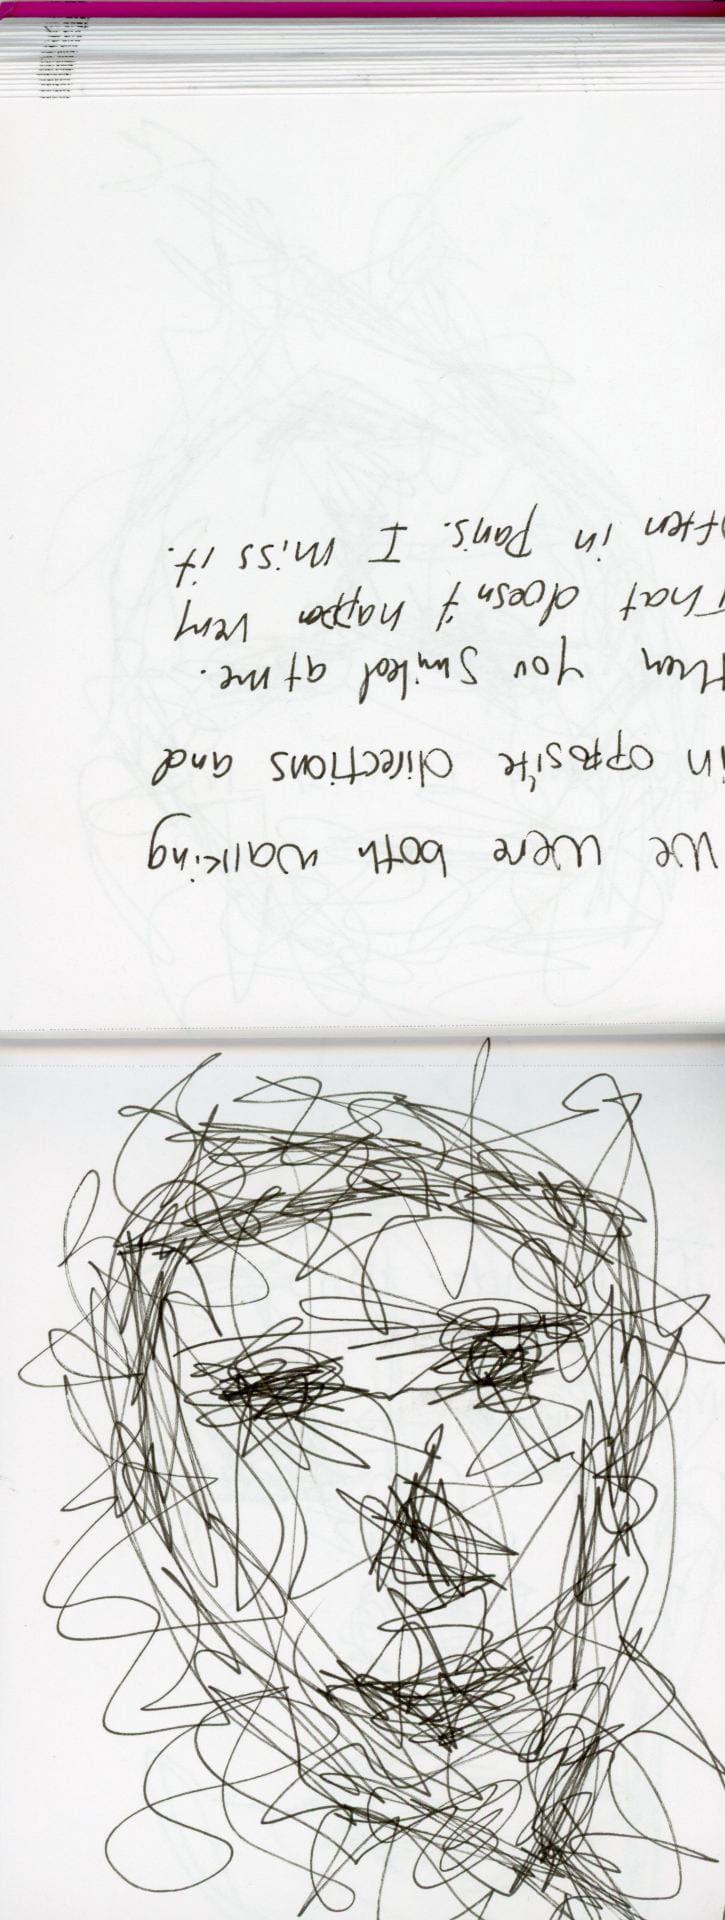 We were both walking
in opposite directions and
then you smiled at me.
That doesn't happen very
often in Paris. I miss it.